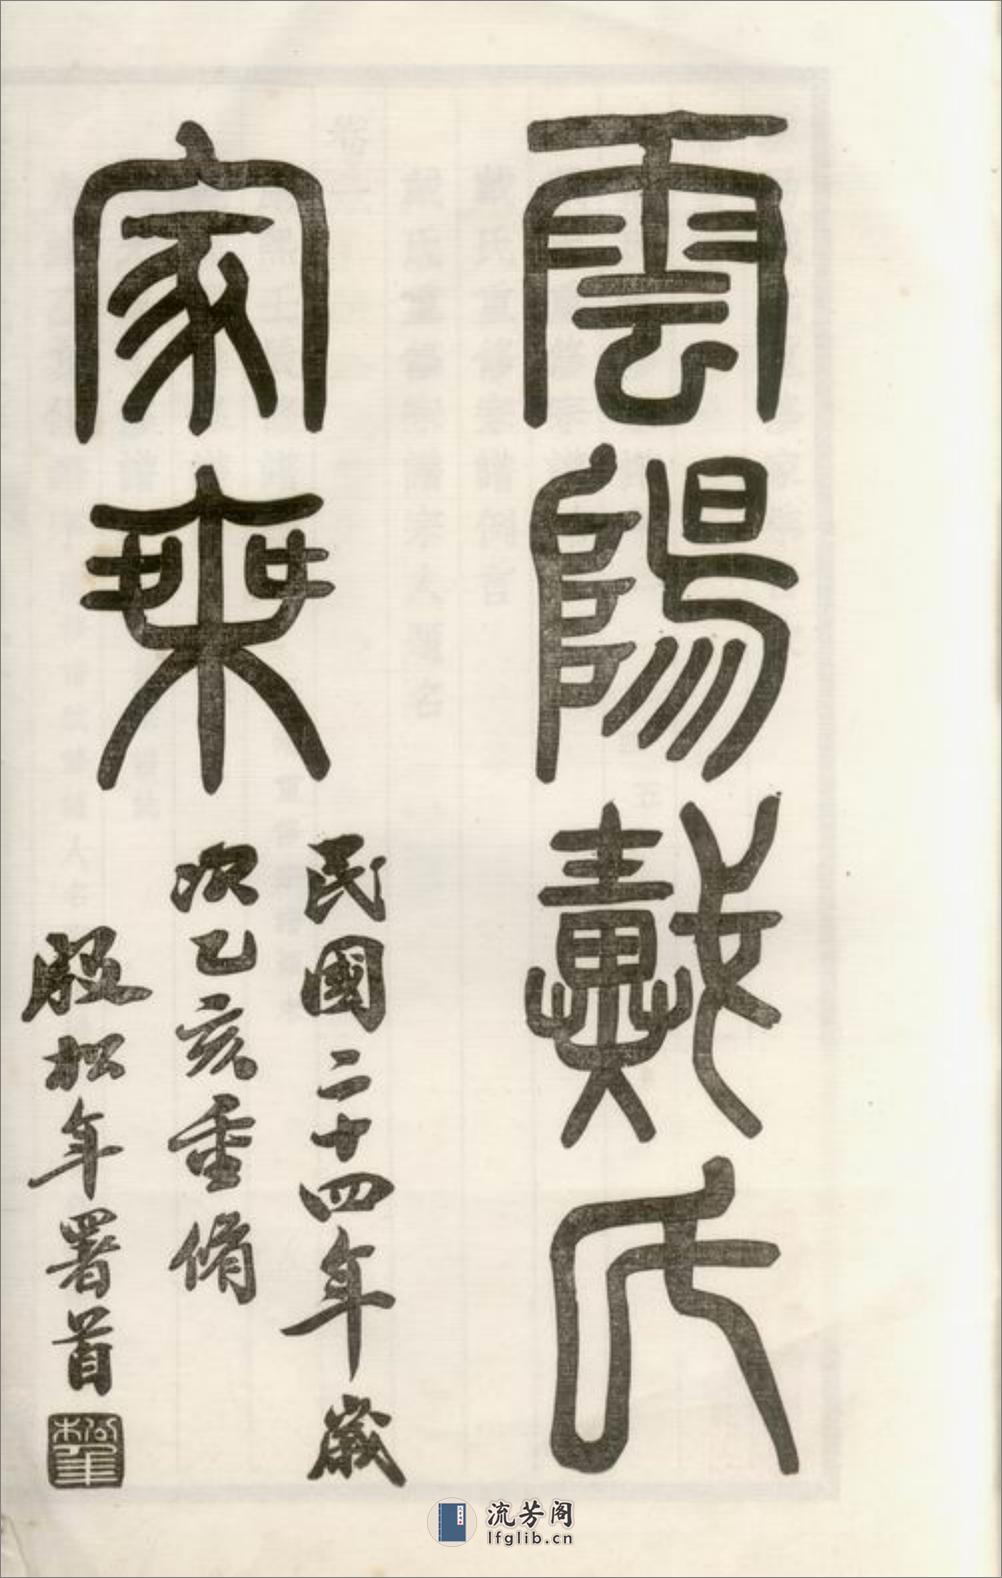 雲陽戴氏
家乘
民國二十四年歲
次乙亥重脩
殷松年署首
松年
流芳阁
lfglib.cn